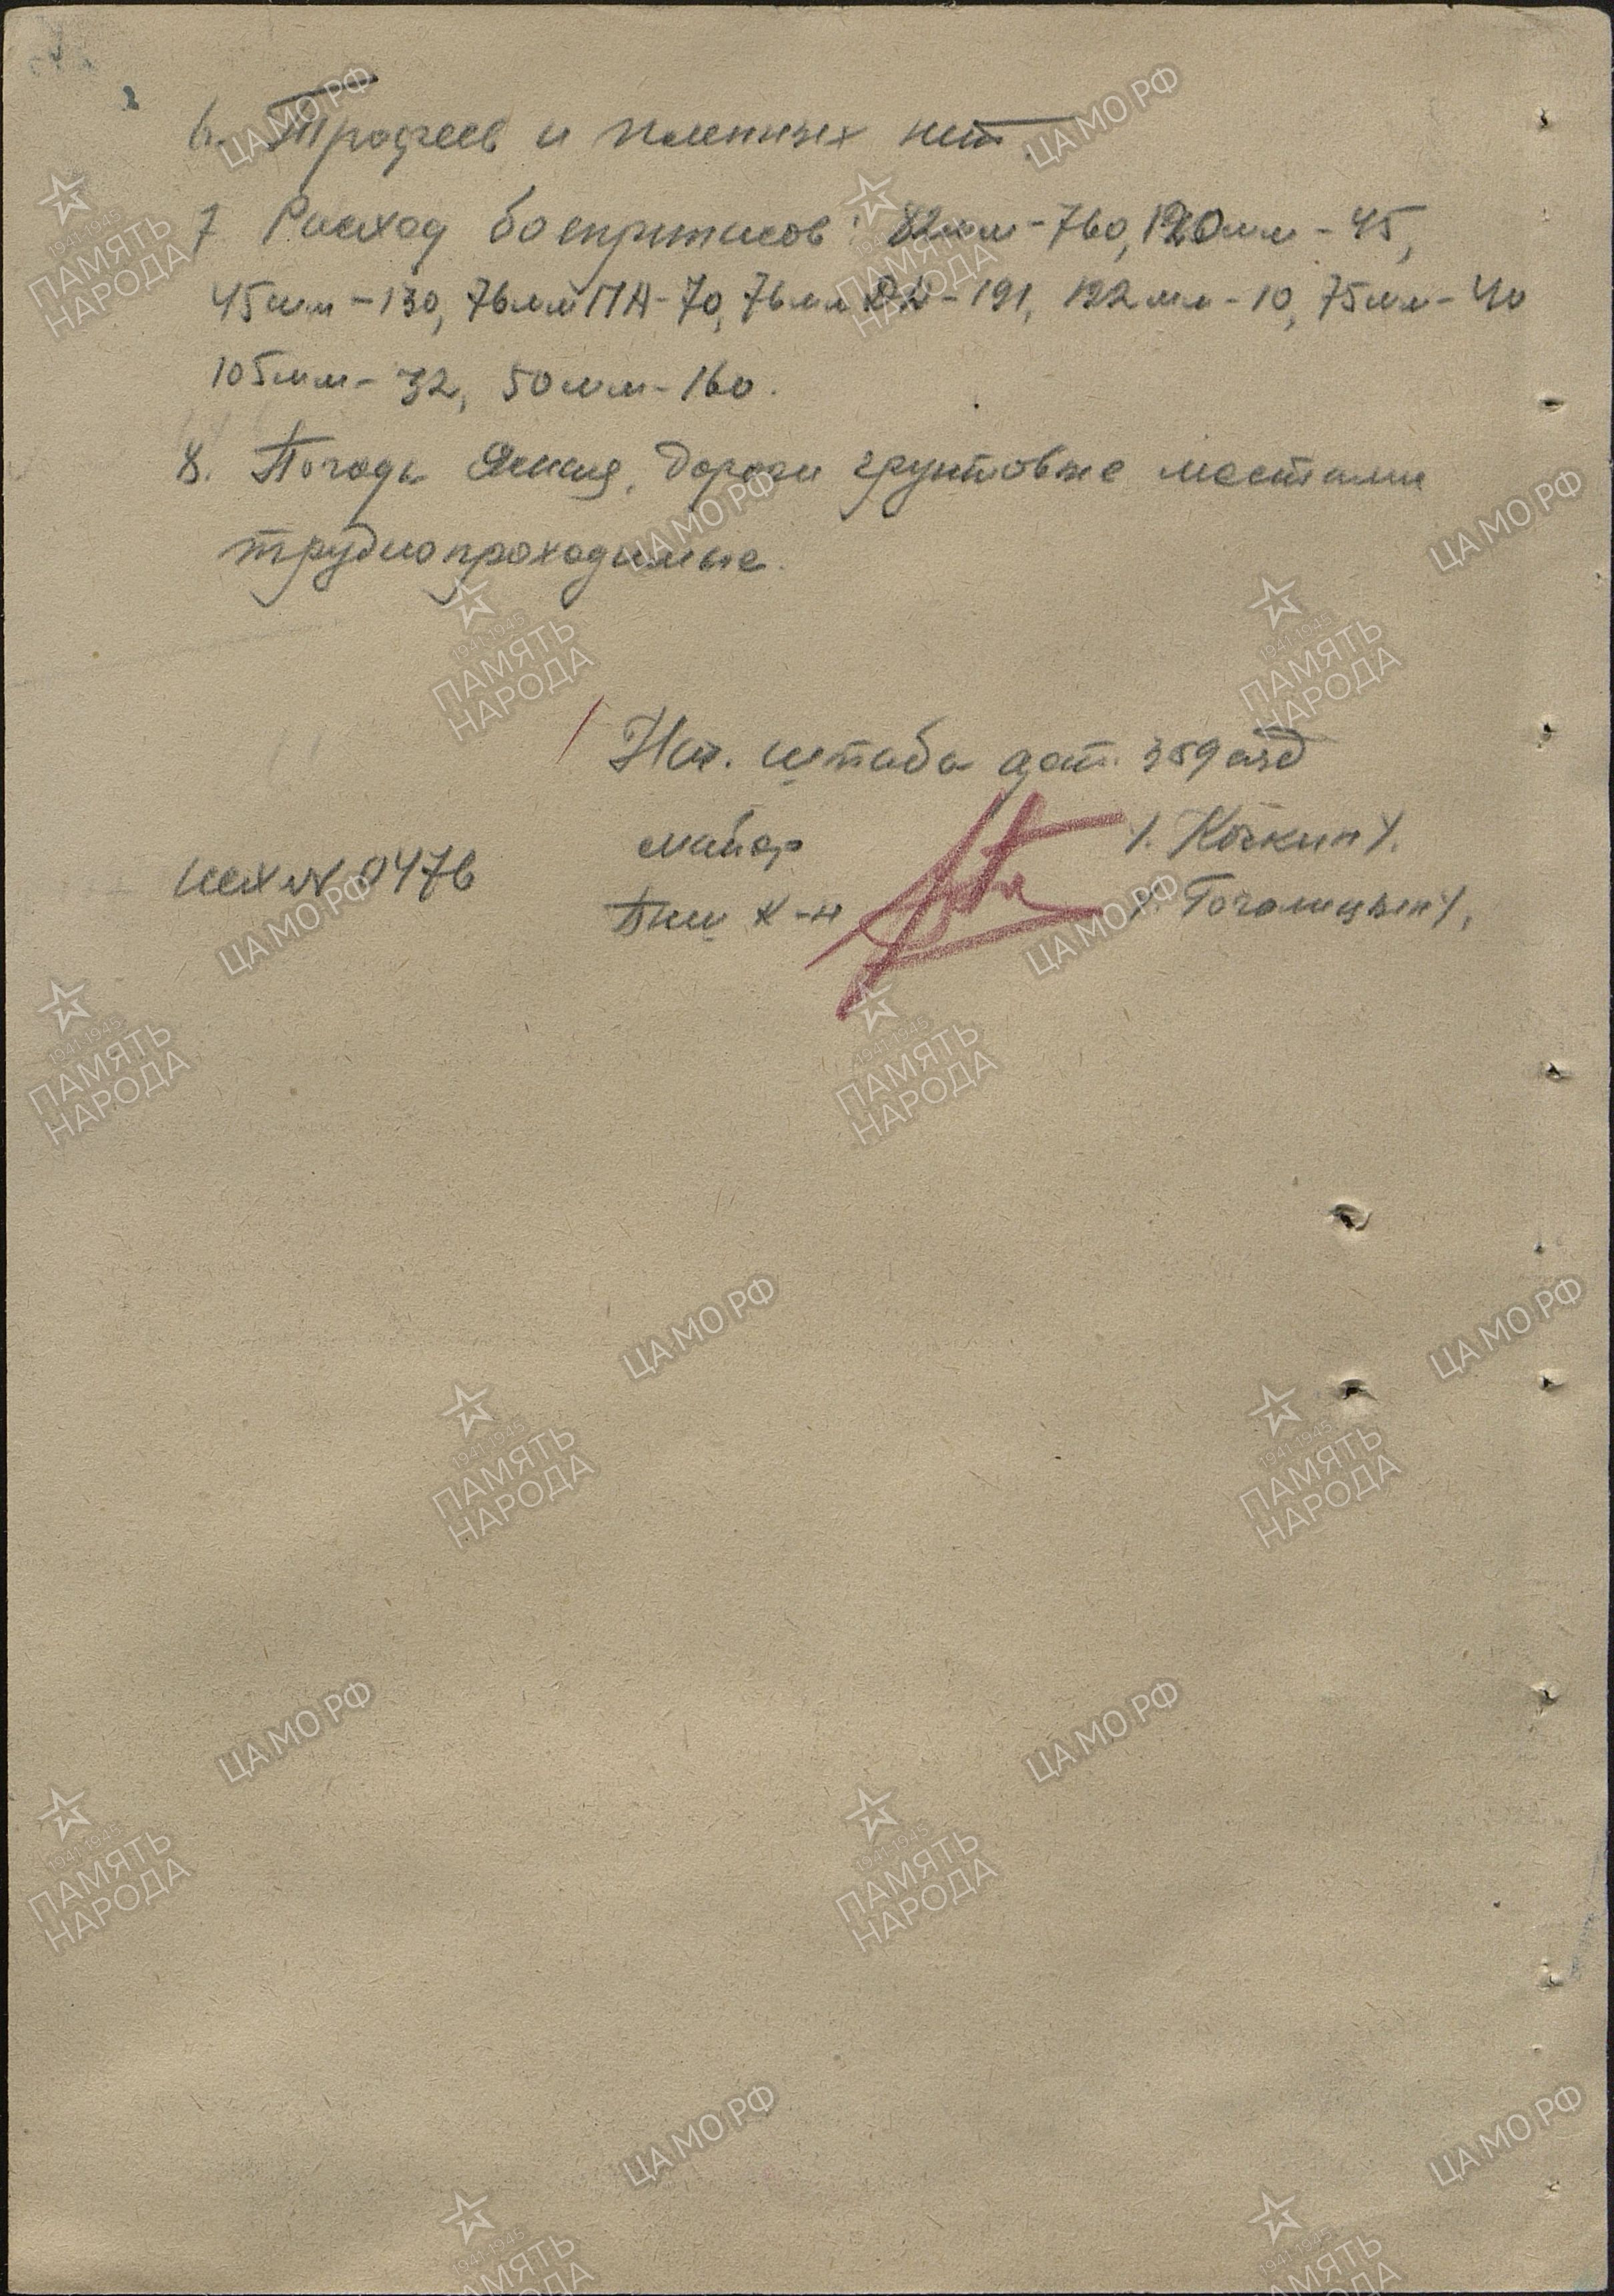 6. Трофеев и пленных нет.
7. Расход боеприпасов: 82мм-760, 120мм-45,
45мм-130, 76мм ПА-70, 76мм ДА-191, 122мм-10, 75мм-40
105мм-32, 50мм-160.
8. Погода Ясная, Дороги грунтовые местами
труднопроходимые.
Нач. штаба арт. 359 сд
майор /. Кочкин /.
исх № 0476
Пнш к-н /. Гоголицын /.
ЦАМО РФ
1941-1945
ПАМЯТЬ
НАРОДА